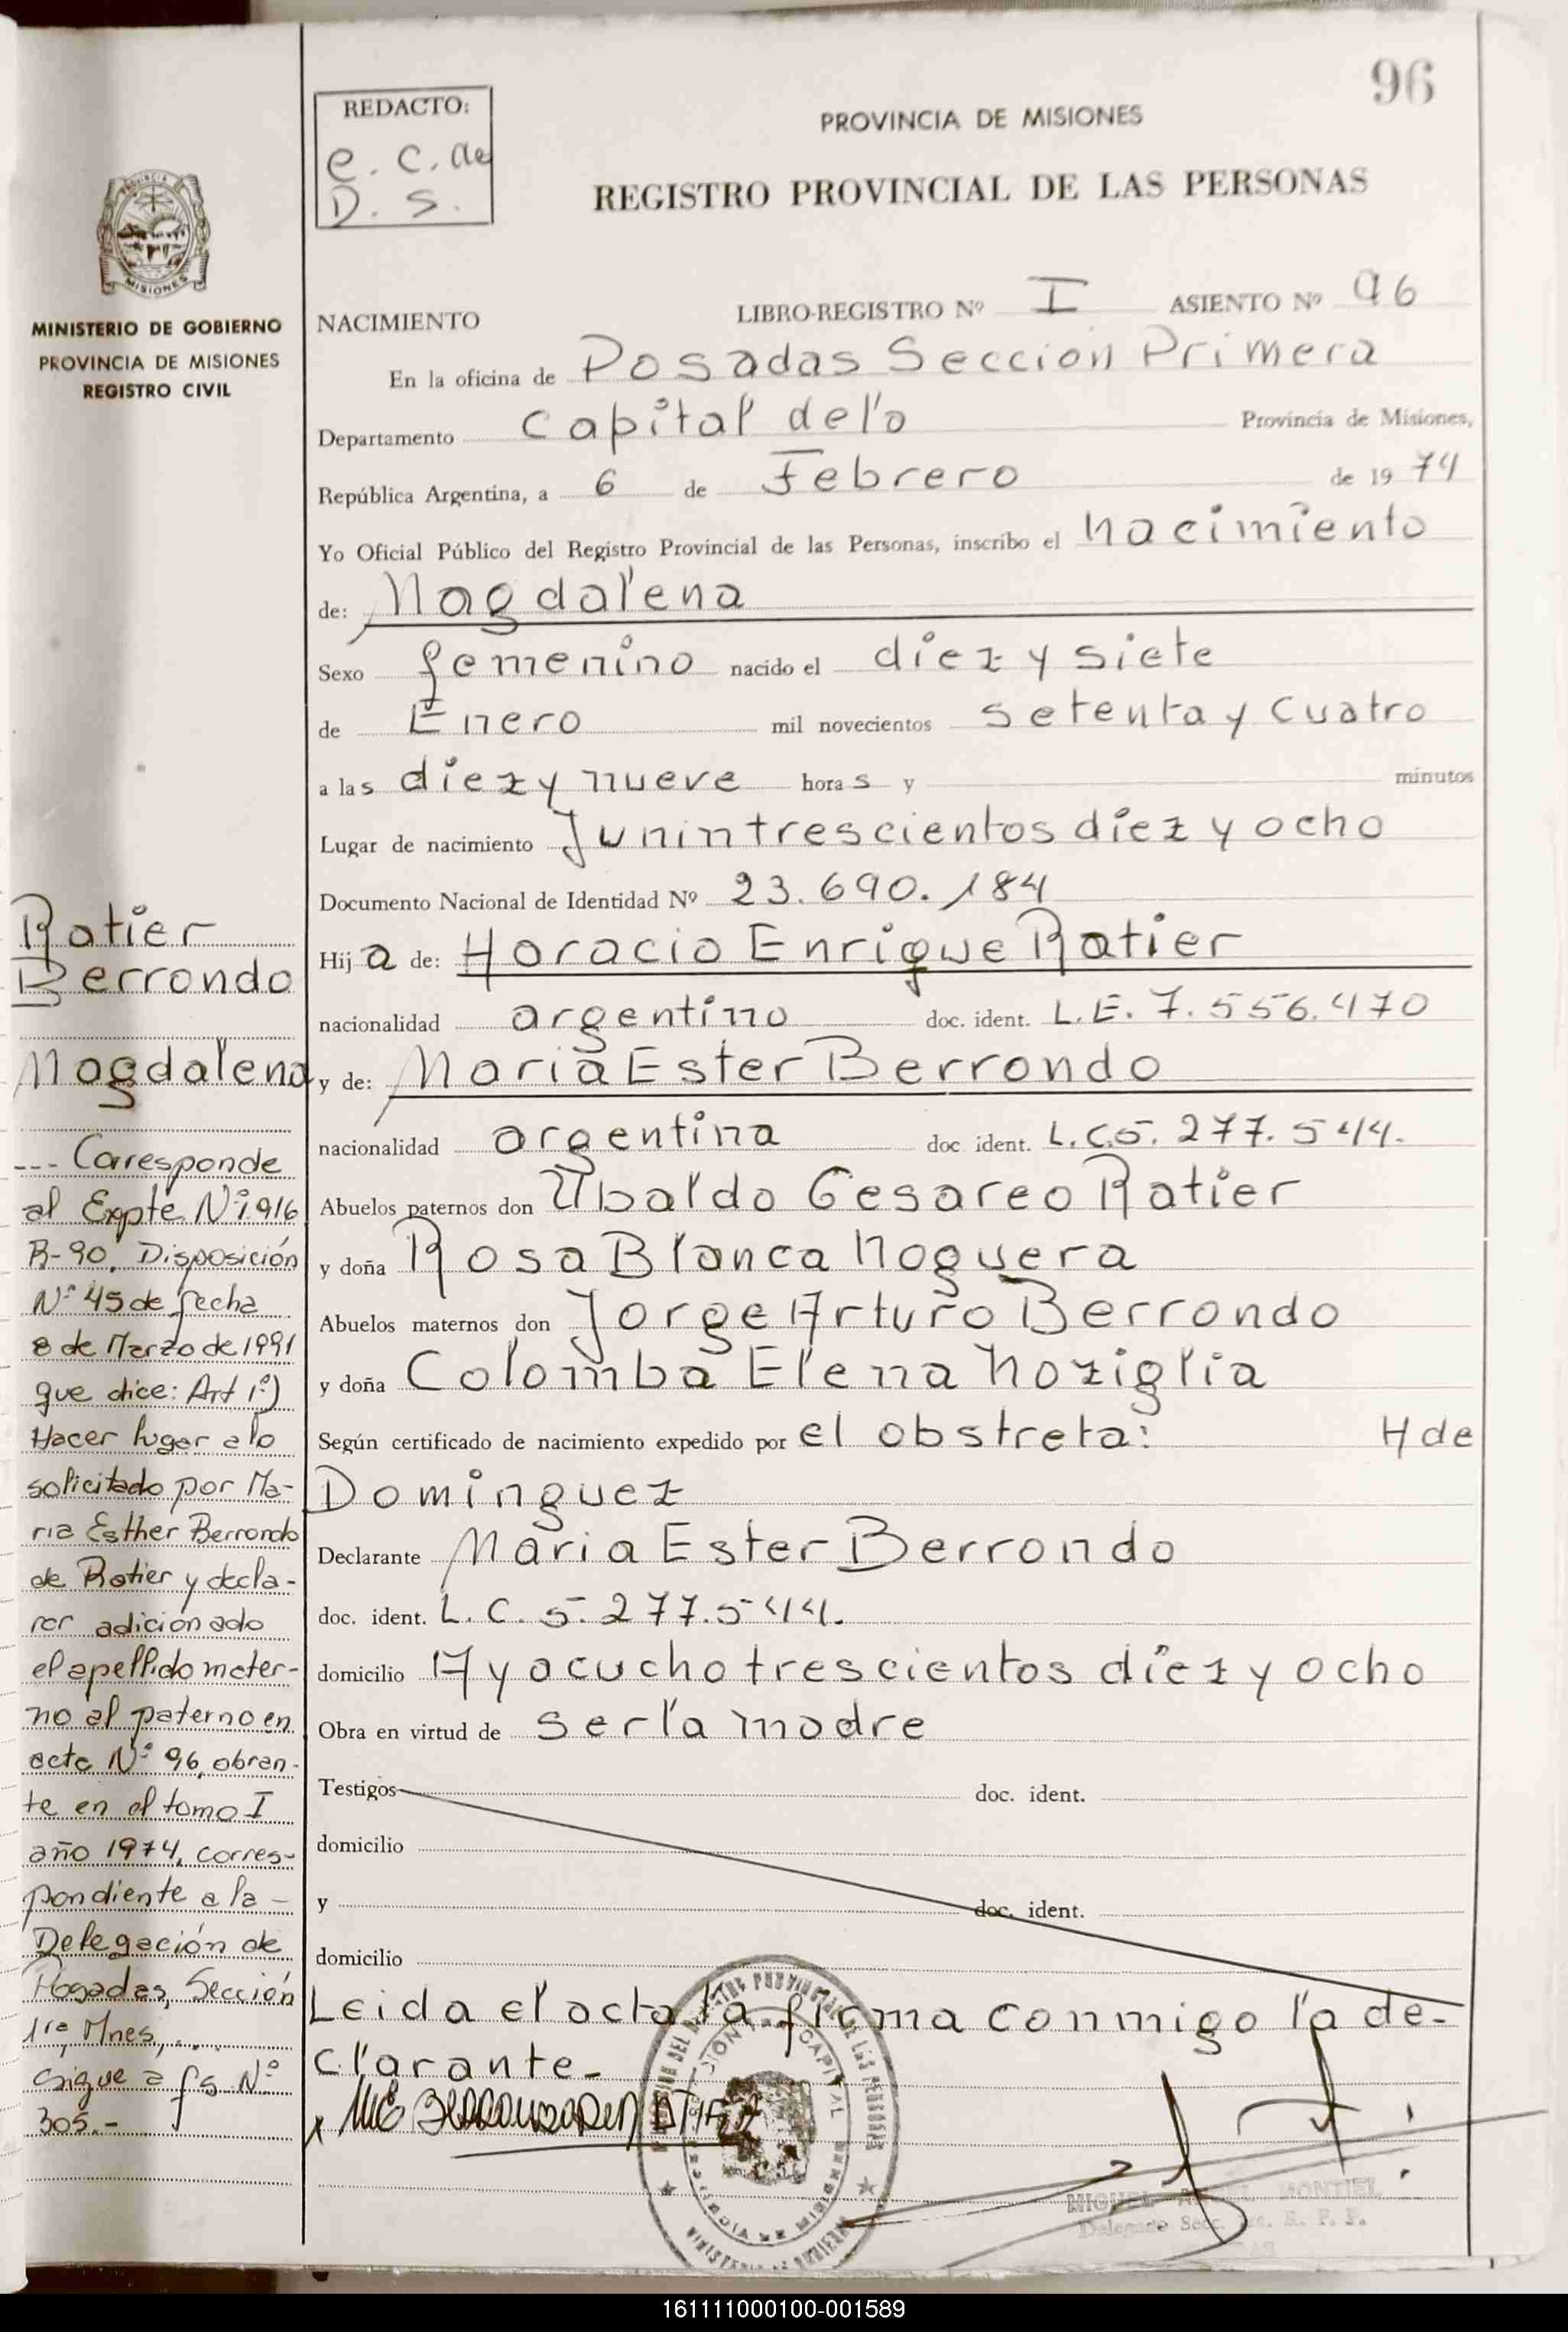 96
REDACTO:
e. c. de
D. S.
PROVINCIA DE MISIONES
REGISTRO PROVINCIAL DE LAS PERSONAS
MISIONES
MINISTERIO DE GOBIERNO
PROVINCIA DE MISIONES
REGISTRO CIVIL
NACIMIENTO LIBRO-REGISTRO Nº I ASIENTO Nº 96
En la oficina de Posadas Sección Primera
Departamento Capital Provincia de Misiones,
República Argentina, a 6 de Febrero de 1974
Yo Oficial Público del Registro Provincial de las Personas, inscribo el nacimiento
de: Magdalena
Sexo femenino nacido el diez y siete
de Enero mil novecientos setenta y cuatro
a las diez y nueve horas y minutos
Lugar de nacimiento Junin trescientos diez y ocho
Documento Nacional de Identidad Nº 23.690.184
Hija de: Horacio Enrique Ratier
nacionalidad argentino doc. ident. L.E. 7.556.470
y de: Maria Ester Berrondo
nacionalidad argentina doc. ident. L.C. 5.277.544.
Abuelos paternos don Ubaldo Cesareo Ratier
y doña Rosa Blanca Noguera
Abuelos maternos don Jorge Arturo Berrondo
y doña Colomba Elena Noziglia
Según certificado de nacimiento expedido por el obstreta: H de
Dominguez
Declarante Maria Ester Berrondo
doc. ident. L.C. 5.277.544.
domicilio Ayacucho trescientos diez y ocho
Obra en virtud de ser la madre
Testigos doc. ident.
domicilio
y doc. ident.
domicilio
Leida el acta la firma conmigo la de-
clarante-
MIGUEL ANGEL MONTIEL
Delegado Secc.
Ratier
Berrondo
Magdalena
--- Corresponde
al Expte Nº 1.916
R-90, Disposición
Nº 45 de fecha
8 de Marzo de 1991
que dice: Art 1º)
Hacer lugar a lo
solicitado por Ma-
ria Esther Berrondo
de Ratier y decla-
rar adicionado
el apellido mater-
no al paterno en
acta Nº 96, obran-
te en el tomo I
año 1974, corres-
pondiente a la -
Delegación de
Posadas, Sección
1ra Mnes, ...
Sigue a fs Nº
305.-
161111000100-001589